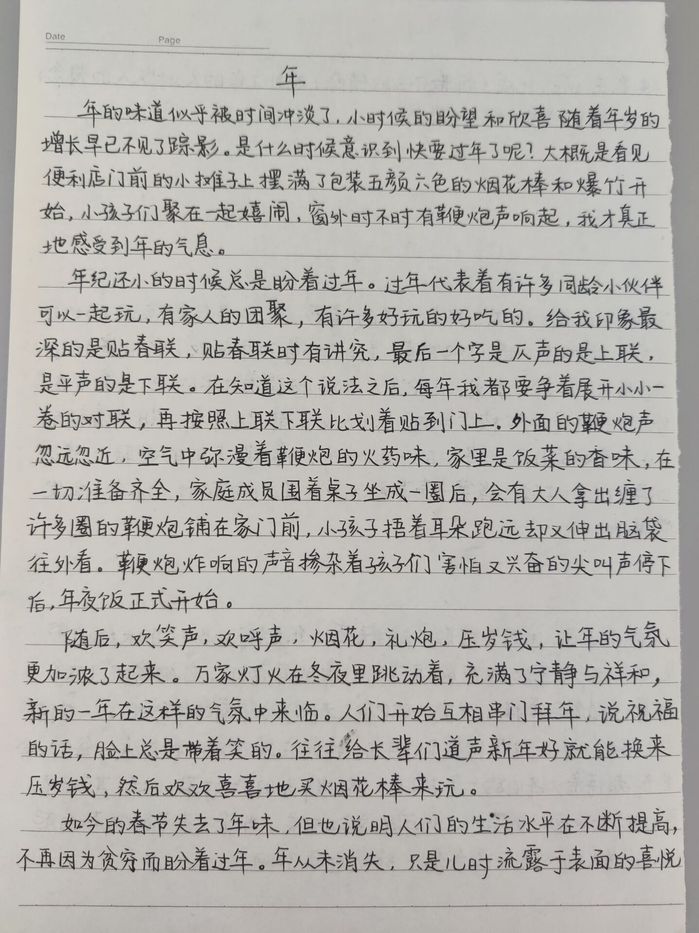 Date
Page
年
年的味道似乎被时间冲淡了，小时候的盼望和欣喜随着年岁的
增长早已不见了踪影。是什么时候意识到快要过年了呢？大概是看见
便利店门前的小摊子上摆满了包装五颜六色的烟花棒和爆竹开
始，小孩子们聚在一起嬉闹，窗外时不时有鞭炮声响起，我才真正
地感受到年的气息。
年纪还小的时候总是盼着过年。过年代表着有许多同龄小伙伴
可以一起玩，有家人的团聚，有许多好玩的好吃的。给我印象最
深的是贴春联，贴春联时有讲究，最后一个字是仄声的是上联，
是平声的是下联。在知道这个说法之后，每年我都要争着展开小小一
卷的对联，再按照上联下联比划着贴到门上。外面的鞭炮声
忽远忽近，空气中弥漫着鞭炮的火药味，家里是饭菜的香味，在
一切准备齐全，家庭成员围着桌子坐成一圈后，会有大人拿出缠了
许多圈的鞭炮铺在家门前，小孩子捂着耳朵跑远却又伸出脑袋
往外看。鞭炮炸响的声音掺杂着孩子们害怕又兴奋的尖叫声停下
后，年夜饭正式开始。
随后，欢笑声，欢呼声，烟花，礼炮，压岁钱，让年的气氛
更加浓了起来。万家灯火在冬夜里跳动着，充满了宁静与祥和，
新的一年在这样的气氛中来临。人们开始互相串门拜年，说祝福
的话，脸上总是带着笑的。往往给长辈们道声新年好就能换来
压岁钱，然后欢欢喜喜地买烟花棒来玩。
如今的春节失去了年味，但也说明人们的生活水平在不断提高，
不再因为贫穷而盼着过年。年从未消失，只是儿时流露于表面的喜悦